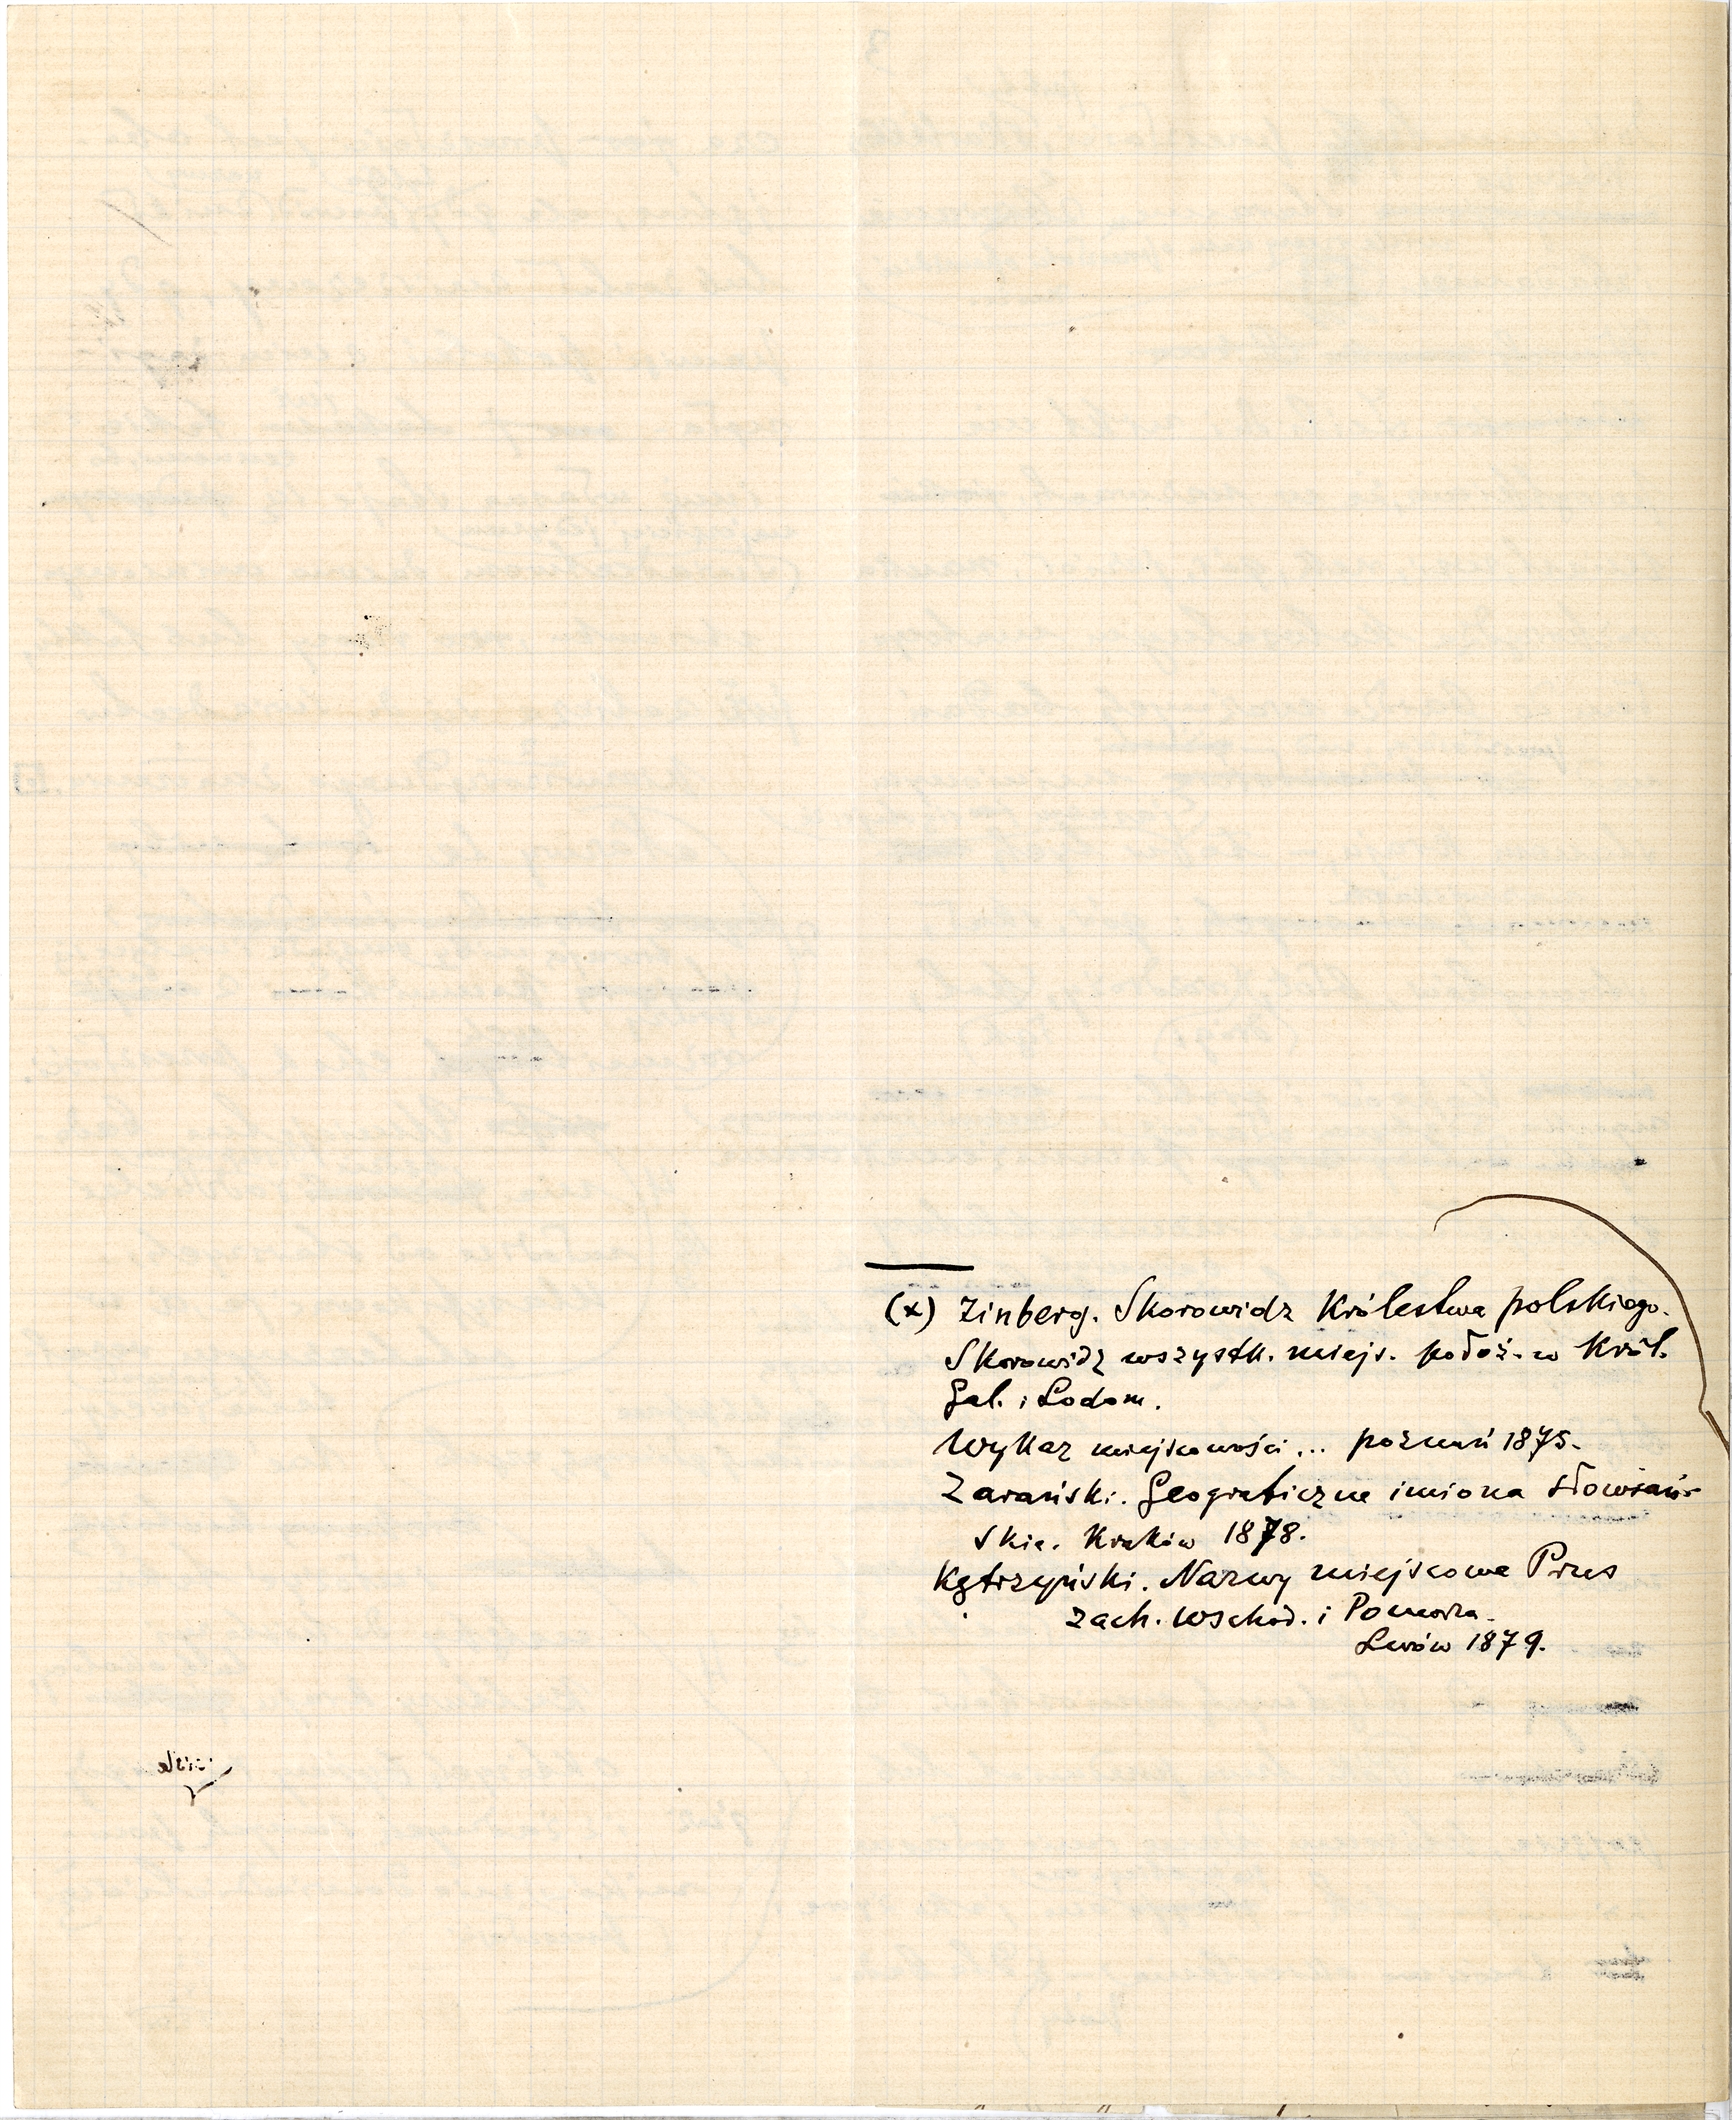 (x) Zinberg. Skorowidz Królestwa polskiego.
Skorowidz wszystk. miejs. położ. w Król.
Gal. i Lodom.
Wykaz miejscowości... poznań 1875.
Zarański. Geograficzne imiona słowiań-
skie. Kraków 1878.
Kętrzyński. Nazwy miejscowe Prus
zach. wschod. i Pomorza.
Lwów 1879.